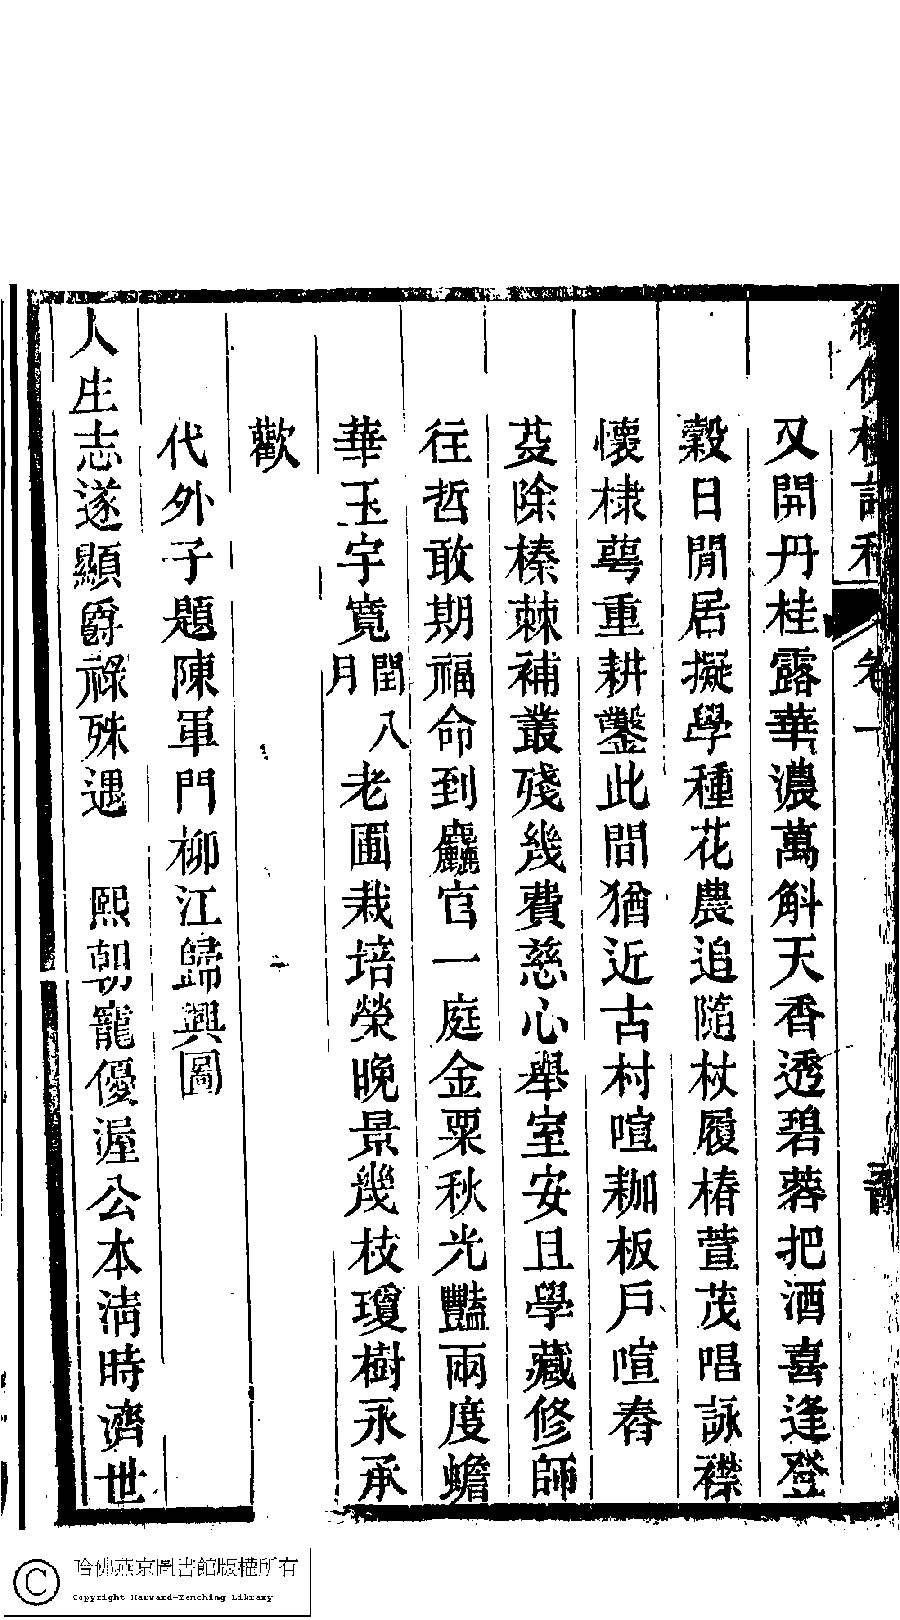 又開丹桂露華濃萬斛天香透碧蓉把酒喜逢登
穀日閒居擬學種花農追隨杖履椿萱茂唱詠襟
懷棣萼重耕鑿此間猶近古村喧耞板戶喧舂
芟除榛棘補叢殘幾費慈心舉室安且學藏修師
往哲敢期福命到麤官一庭金粟秋光豔兩度蟾
華玉宇寬閏八月老圃栽培榮晚景幾枝瓊樹永承
歡
代外子題陳軍門柳江歸興圖
人生志遂顯爵祿殊遇 熙朝寵優渥公本清時濟世
卷一
哈佛燕京圖書館版權所有
Copyright Harvard-Yenching Library